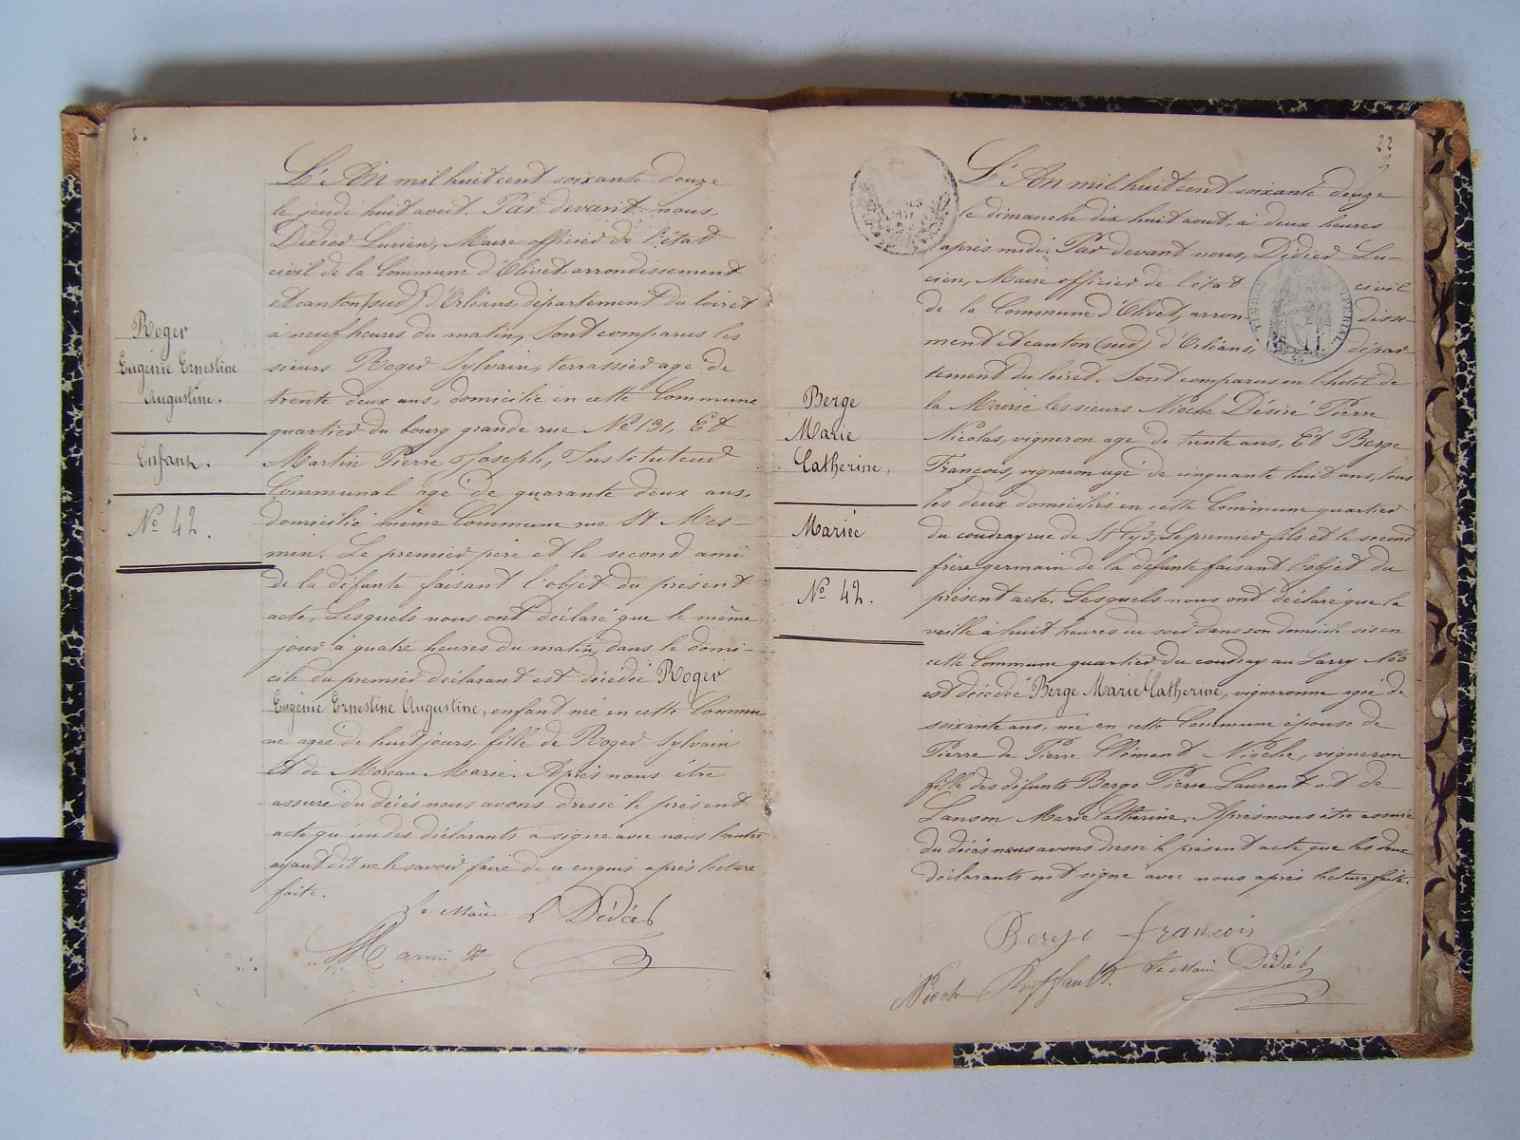 Roger
Eugénie Ernestine
Augustine.
Enfant.
No 42.
L'An mil huit cent soixante douze
le jeudi huit aout. Par devant nous,
Dédier Lucien, Maire officier de l'état
civil de la Commune d'Olivet arrondissement
et canton (sud) d'Orléans, département du loiret
à neuf heures du matin, Sont comparus les
sieurs Roger Sylvain, terrassier agé de
trente deux ans, domicilié en cette Commune
quartier du bourg grande rue No 131, Et
Martin Pierre Joseph, Instituteur
Communal agé de quarante deux ans,
domicilié même Commune rue St Mes-
min. Le premier père et le second ami
de la défunte faisant l'objet du présent
acte, Lesquels nous ont déclaré que le même
jour à quatre heures du matin, dans le domi-
cile du premier déclarant est décédée Roger
Eugénie Ernestine Augustine, enfant née en cette Commu
ne agée de huit jours, fille de Roger Sylvain
et de Moreau Marie. Après nous être
assuré du décès nous avons dressé le présent
acte qu'un des déclarants a signé avec nous l'autre
ayant dit ne le savoir faire de ce enquis après lecture
faite.
Le Maire
L Dédier
Martin
22
Berge
Marie
Catherine,
Mariée
No 42.
L'An mil huit cent soixante douze
le dimanche dix huit aout, à deux heures
après midi, Par devant nous, Dédier Lu-
cien, Maire officier de l'état civil
de la Commune d'Olivet, arron disse-
ment et canton (sud) d'Orléans, dépar
tement du loiret. Sont comparus en l'hôtel de
la Mairie les sieurs Nioche Désiré Pierre
Nicolas, vigneron agé de trente ans, Et Berge
François, vigneron agé de cinquante huit ans, tous
les deux domiciliés en cette Commune quartier
du coudray rue de St Le premier fils et le second
frère germain de la défunte faisant l'objet du
présent acte. Lesquels nous ont déclaré que la
veille à huit heures du soir dans son domicile sis en
cette Commune quartier du coudray au Larry No
est décédée Berge Marie Catherine, vigneronne agée de
soixante ans, née en cette Commune épouse de
Pierre de Pierre Clément Nioche, vigneron
fille des défunts Berge Pierre Laurent et de
Lanson Marie Catherine, Après nous être assuré
du décès nous avons dressé le présent acte que les deux
déclarants ont signé avec nous après lecture faite.
Berge françois
Nioche
Le Maire Dédier